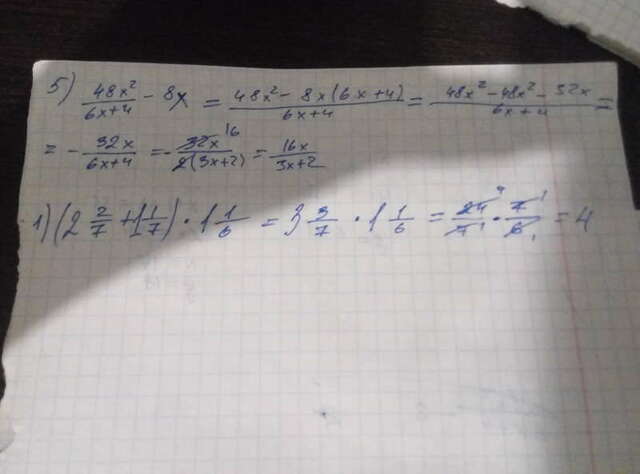 5) 48x²/(6x+4) - 8x = (48x² - 8x(6x+4))/(6x+4) = (48x² - 48x² - 32x)/(6x+4) =
= - 32x/(6x+4) = - 32x 16/(2(3x+2)) = 16x/(3x+2)
1) (2 2/7 + 1 1/7) · 1 1/6 = 3 3/7 · 1 1/6 = 24 4/7 1 · 7 1/6 1 = 4